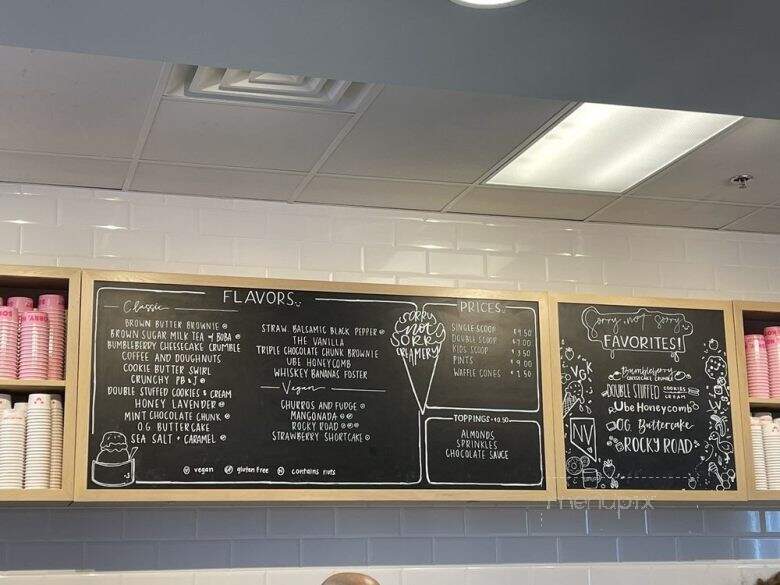 FLAVORS
Classic
BROWN BUTTER BROWNIE
BROWN SUGAR MILK TEA W/ BOBA
BUMBLEBERRY CHEESECAKE CRUMBLE
COFFEE AND DOUGHNUTS
COOKIE BUTTER SWIRL
CRUNCHY PB & J
DOUBLE STUFFED COOKIES & CREAM
HONEY LAVENDER
MINT CHOCOLATE CHUNK
O.G. BUTTERCAKE
SEA SALT + CARAMEL
STRAW. BALSAMIC BLACK PEPPER
THE VANILLA
TRIPLE CHOCOLATE CHUNK BROWNIE
UBE HONEYCOMB
WHISKEY BANANAS FOSTER
Vegan
CHURROS AND FUDGE
MANGONADA
ROCKY ROAD
STRAWBERRY SHORTCAKE
vegan gluten free contains nuts
SORRY
not
SORRY
CREAMERY
PRICES
SINGLE SCOOP $5.50
DOUBLE SCOOP $7.00
KIDS SCOOP $3.50
PINTS $9.00
WAFFLE CONES $1.50
TOPPINGS +$0.50
ALMONDS
SPRINKLES
CHOCOLATE SAUCE
Sorry not Sorry
FAVORITES!
Bumbleberry
CHEESECAKE CRUMBLE
DOUBLE STUFFED COOKIES & CREAM
Ube Honeycomb
O.G. Buttercake
ROCKY ROAD
NV
menupix